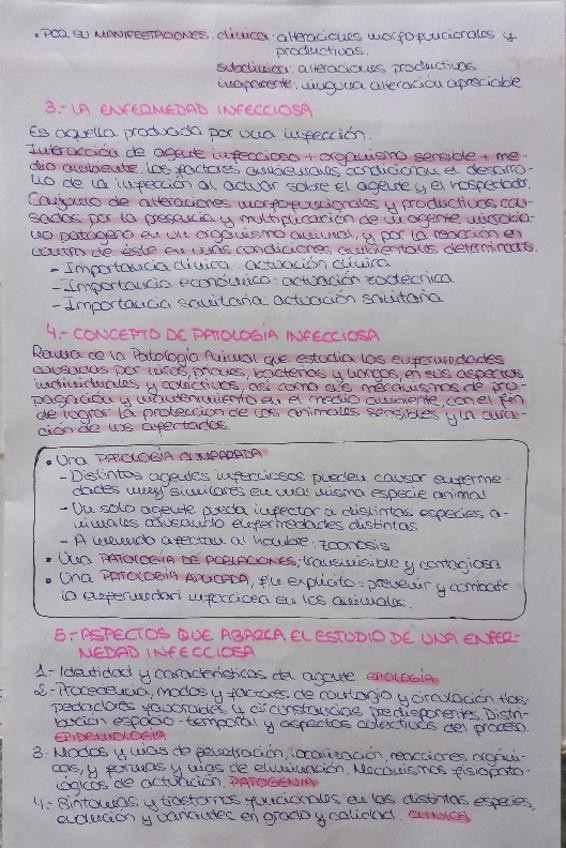 • POR SU MANIFESTACIONES. clínica: alteraciones morfofuncionales y
productivas.
subclínica: alteraciones productivas
inaparente: ninguna alteración apreciable
3.- LA ENFERMEDAD INFECCIOSA
Es aquella producida por una infección.
Interacción de agente infeccioso + organismo sensible + me-
dio ambiente. Los factores ambientales condicionan el desarro-
llo de la infección al actuar sobre el agente y el hospedador.
Conjunto de alteraciones morfofuncionales y productivas cau-
sadas por la presencia y multiplicación de un agente microbia-
no patógeno en un organismo animal, y por la reacción en
contra de éste en unas condiciones ambientales determinadas.
- Importancia clínica: actuación clínica
- Importancia económica: actuación zootécnica
- Importancia sanitaria: actuación sanitaria
4.- CONCEPTO DE PATOLOGÍA INFECCIOSA
Rama de la Patología Animal que estudia las enfermedades
causadas por virus, priones, bacterias y hongos, en sus aspectos
individuales y colectivos, así como sus mecanismos de pro-
pagación y mantenimiento en el medio ambiente con el fin
de lograr la protección de los animales sensibles y la cura-
ción de los afectados.
• Una PATOLOGÍA COMPARADA
- Distintos agentes infecciosos pueden causar enferme-
dades muy similares en una misma especie animal
- Un solo agente puede infectar a distintas especies a-
nimales causando enfermedades distintas
- A menudo afectan al hombre: zoonosis
• Una PATOLOGÍA DE POBLACIONES, transmisible y contagiosa
• Una PATOLOGÍA APLICADA, fin explícito = prevenir y combatir
la enfermedad infecciosa en los animales.
5.- ASPECTOS QUE ABARCA EL ESTUDIO DE UNA ENFER-
MEDAD INFECCIOSA
1.- Identidad y características del agente ETIOLOGÍA
2.- Procedencia, modos y factores de contagio y circulación. Hos-
pedadores favorables y circunstancias predisponentes. Distri-
bución espacio-temporal y aspectos colectivos del proceso.
EPIDEMIOLOGÍA
3.- Modos y vías de penetración, localización, reacciones orgáni-
cas, y formas y vías de eliminación. Mecanismos fisiopato-
lógicos de actuación. PATOGENIA
4.- Síntomas y trastornos funcionales en las distintas especies,
evolución y variantes en grado y calidad. CLÍNICA